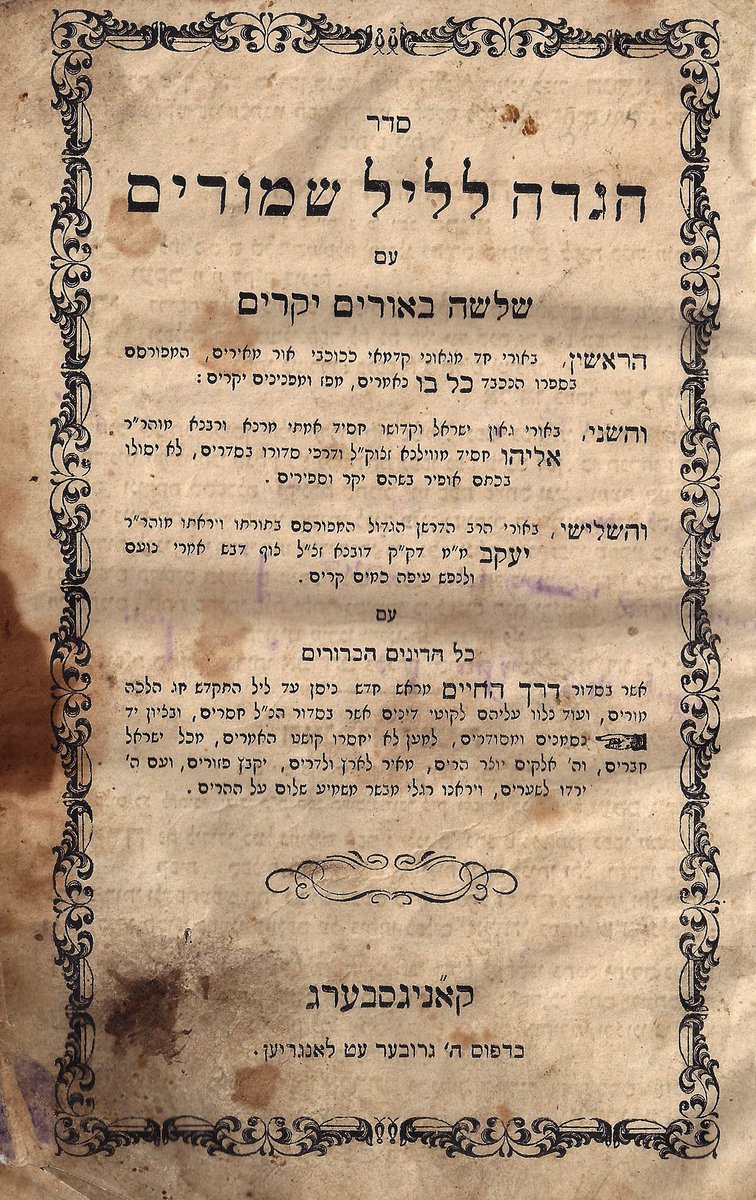 סדר
הגדה לליל שמורים
עם
שלשה באורים יקרים
הראשון, באורי חד מגאוני קדמאי ככוכבי אור מאירים, המפורסם
בספרו הנכבד כל בו נאמרים, מפז ומפנינים יקרים:
והשני, באורי גאון ישראל וקדושו חסיד אמתי מרנא ורבנא מוהר״ר
אליהו חסיד מווילנא זצוק״ל ודרכי סדורו בסדרים, לא יסולו
בכתם אופיר בשהם יקר וספירים.
והשלישי, באורי הרב הדרשן הגדול המפורסם בתורתו ויראתו מוהר״ר
יעקב מ״מ דק״ק דובנא זצ״ל צוף דבש אמרי נועם
ולנפש עיפה כמים קרים.
עם
כל הדינים הברורים
אשר בסדור דרך החיים מראש חדש ניסן עד ליל התקדש חג הלכה
מורים, ועוד נלוו עליהם לקוטי דינים אשר בסדור הנ״ל חסרים, ובציון יד
נסמנים ומסודרים, למען לא יחסרו קושט האמרים, מכל ישראל
חברים, וה׳ אלקים יוצר הרים, מאיר לארץ ולדרים, יקבץ פזורים, ועם ה׳
ירדו לשערים, ויראנו רגלי מבשר משמיע שלום על ההרים.
קאֿניגסבערג
בדפוס ה׳ גרובער עט לאנגריען.